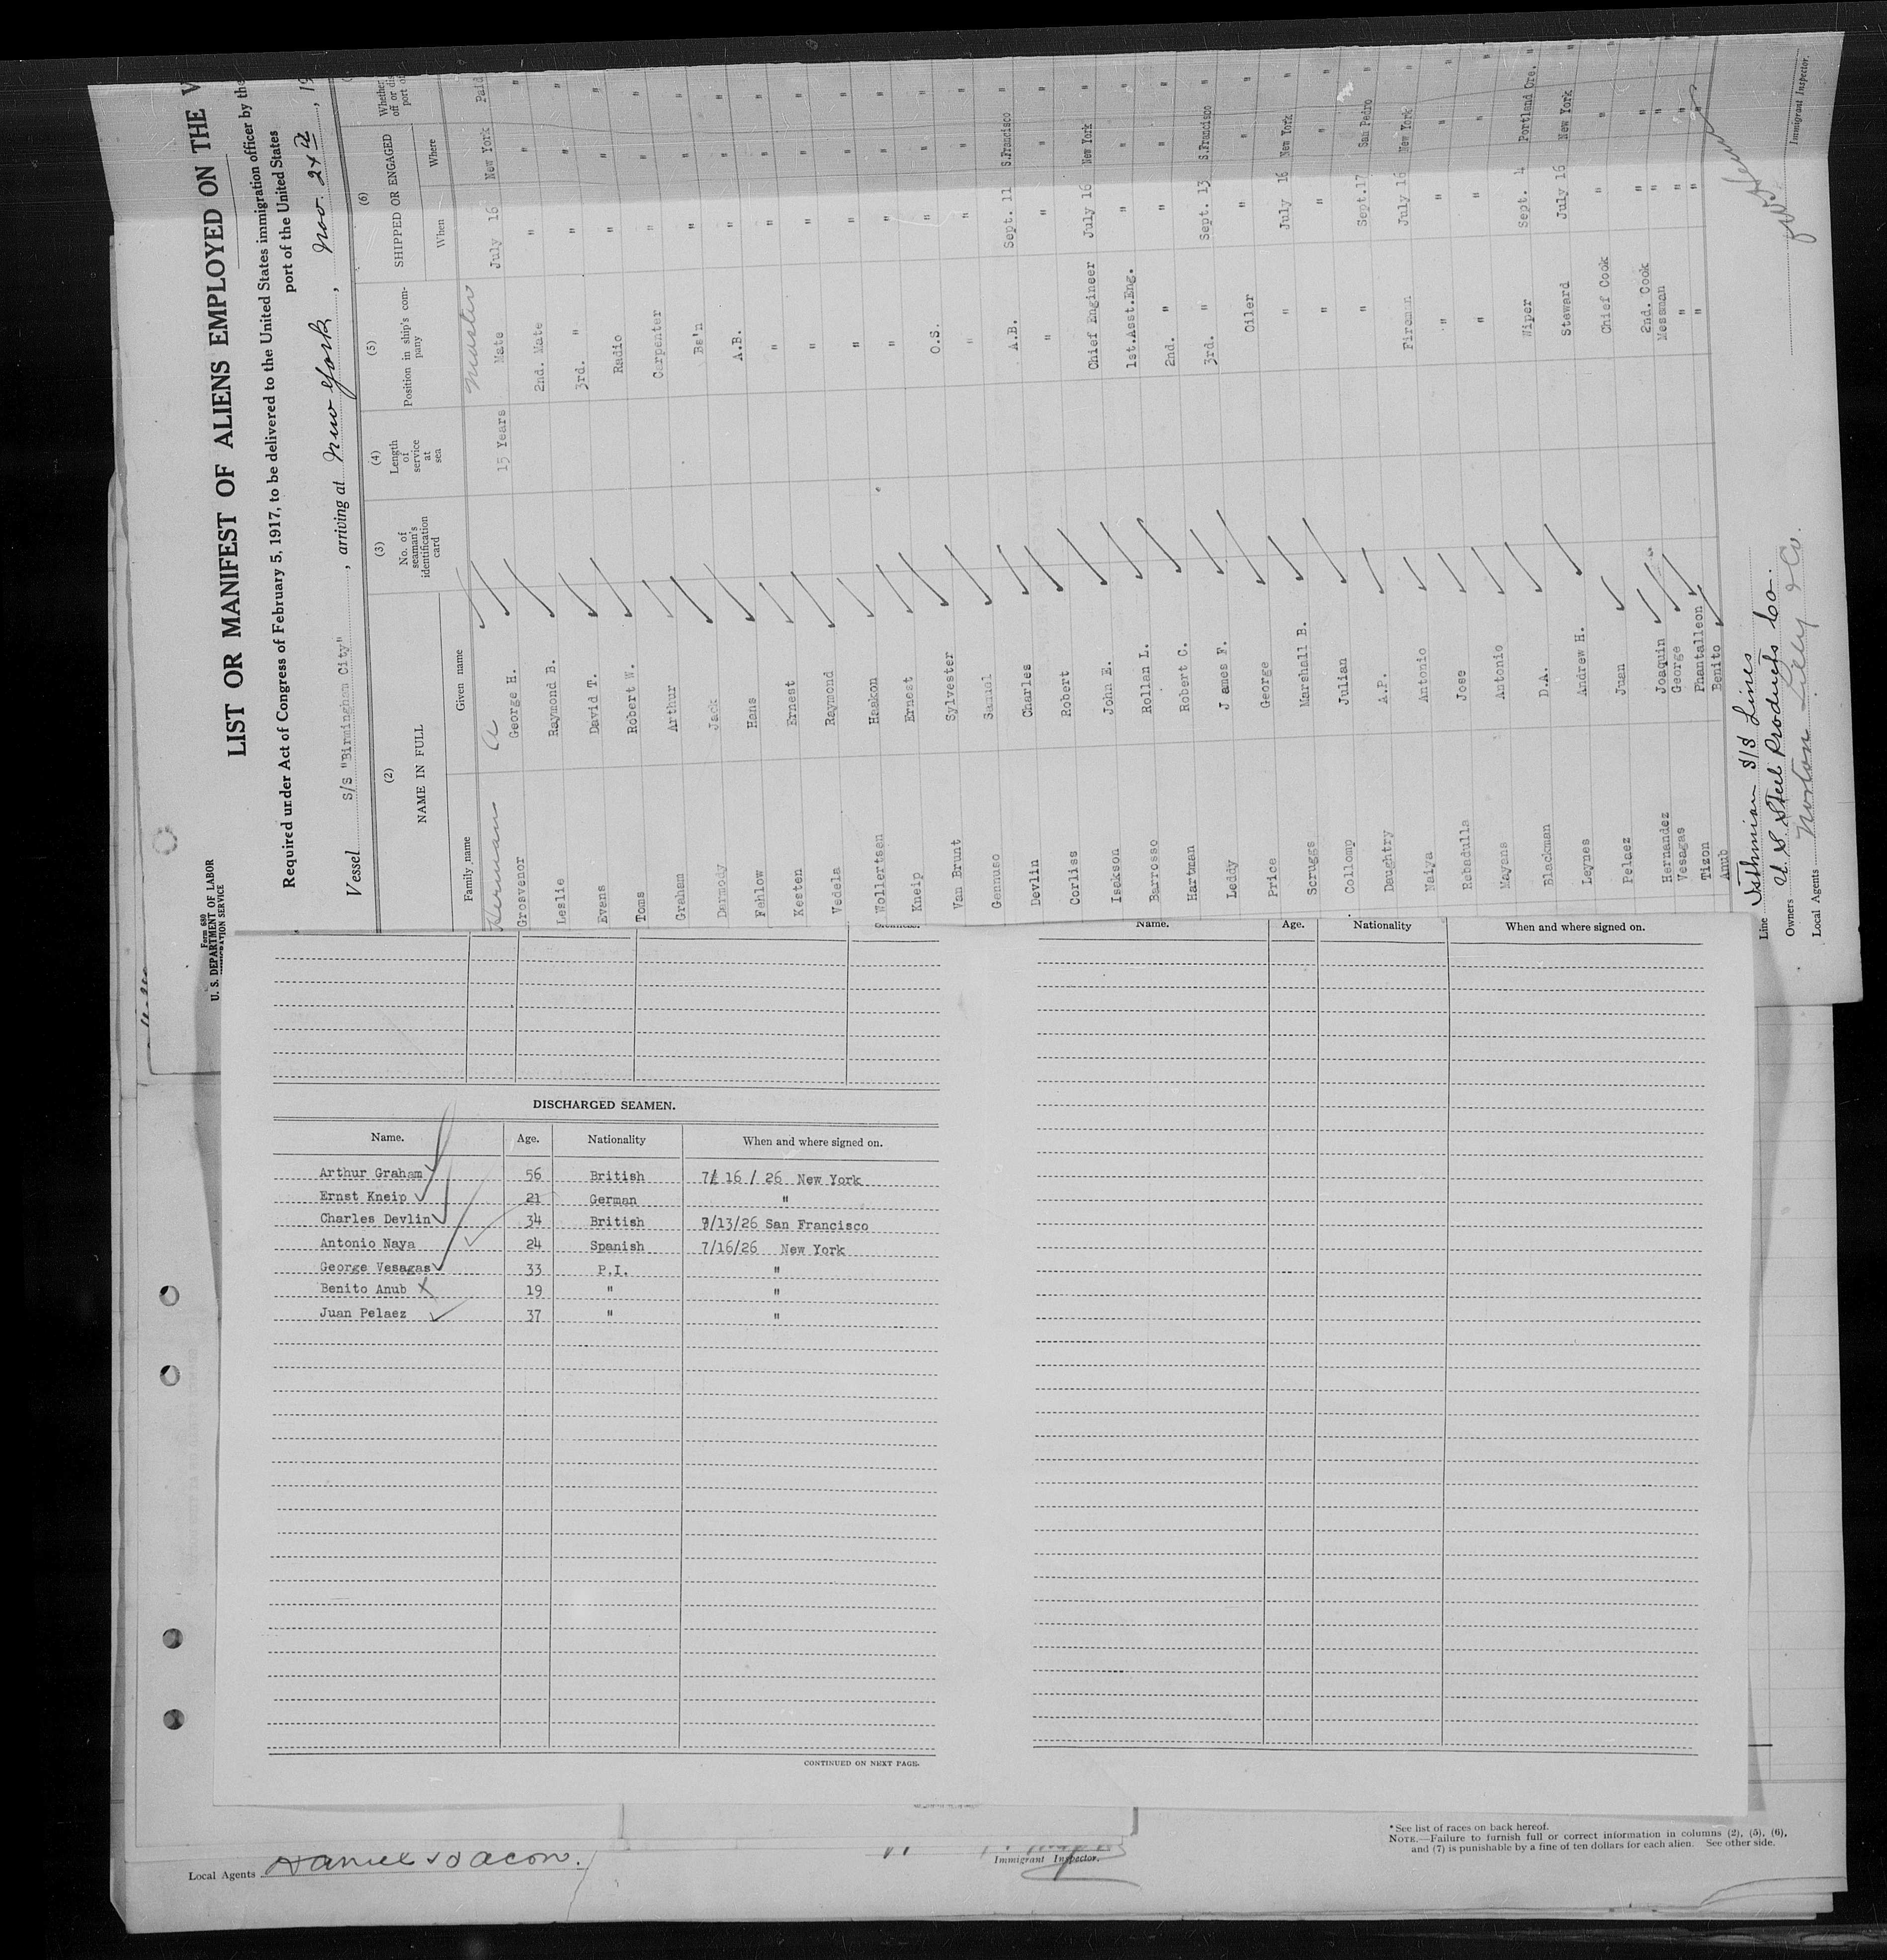 Form 680
U. S. DEPARTMENT OF LABOR
IMMIGRATION SERVICE
LIST OR MANIFEST OF ALIENS EMPLOYED ON THE
Required under Act of Congress of February 5, 1917, to be delivered to the United States immigration officer by the
port of the United States
Vessel S/S "Birmingham City", arriving at New York, Nov. 24th, 19
(2) (3) (4) (5) (6)
NAME IN FULL No. of seaman's identification card Length of service at sea Position in ship's company SHIPPED OR ENGAGED
Family name Given name When Where
Hermans A Master
Grosvenor George H. 15 Years Mate July 16 New York Paid
Leslie Raymond B. 2nd. Mate " " "
Evans David T. 3rd. " " " "
Toms Robert W. Radio " " "
Graham Arthur Carpenter " " "
Dermody Jack Bs'n " " "
Fehlow Hans A.B. " " "
Kesten Ernest " " " "
Vedela Raymond " " " "
Wollertsen Haakon " " " "
Kneip Ernest " " " "
Van Brunt Sylvester O.S. " " "
Gennuso Samuel " " " "
Devlin Charles A.B. Sept. 11 S.Francisco "
Corliss Robert " " " "
Isakson John E. Chief Engineer July 16 New York "
Barrosso Rollan L. 1st.Asst.Eng. " " "
Hartman Robert C. 2nd. " " " "
Leddy James F. 3rd. " Sept. 13 S.Francisco "
Price George Oiler " " "
Scruggs Marshall B. " July 16 New York "
Collomp Julian " " " "
Daughtry A.P. " Sept.17 San Pedro
Naiya Antonio Fireman July 16 New York "
Rebadulla Jose " " " "
Mayans Antonio " " " "
Blackman D.A. Wiper Sept. 4 Portland Ore. "
Leynes Andrew H. Steward July 16 New York "
Pelaez Juan Chief Cook " "
Hernandez Joaquin 2nd. Cook " " "
Vesagas George Messman " " "
Tizon Phantalleon " " " "
Anub Benito " " " "
Line Isthmian S/S Lines
Owners U. S Steel Products Co.
Local Agents Norton Lilly & Co.
Immigrant Inspector.
Name. Age. Nationality When and where signed on.
DISCHARGED SEAMEN.
Name. Age. Nationality When and where signed on.
Arthur Graham 56 British 7/ 16 / 26 New York
Ernst Kneip 21 German "
Charles Devlin 34 British 9/13/26 San Francisco
Antonio Naya 24 Spanish 7/16/26 New York
George Vesagas 33 P.I. "
Benito Anub 19 " "
Juan Pelaez 37 " "
CONTINUED ON NEXT PAGE.
Local Agents Daniel Bacon.
Immigrant Inspector.
*See list of races on back hereof.
NOTE.—Failure to furnish full or correct information in columns (2), (5), (6),
and (7) is punishable by a fine of ten dollars for each alien. See other side.